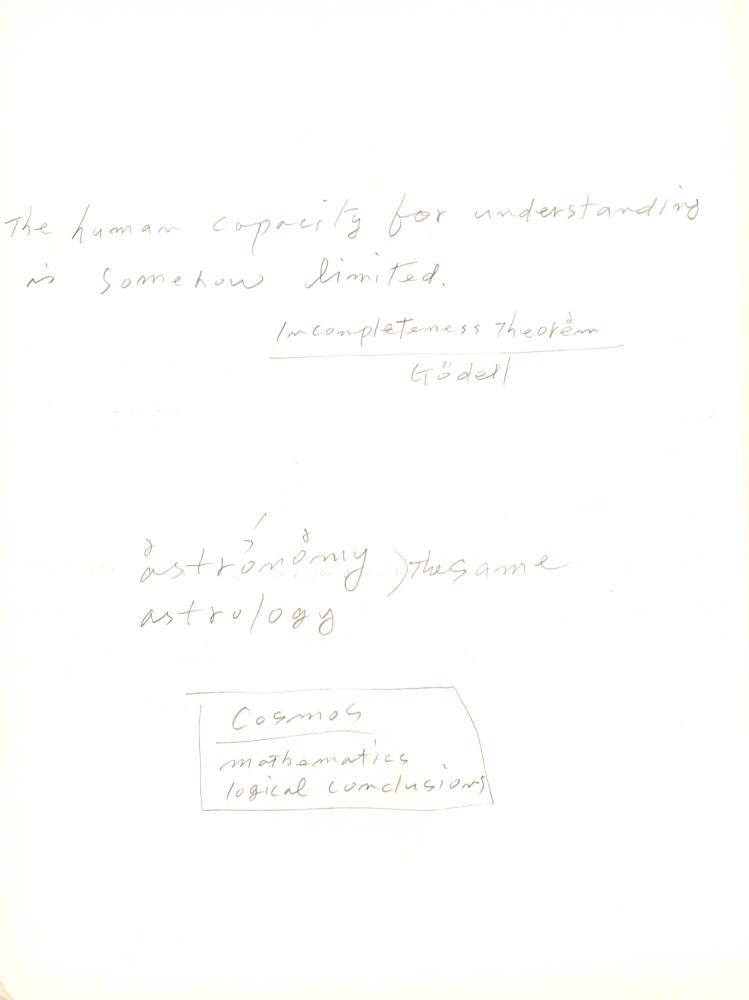 The human capacity for understanding
is somehow limited.
Incompleteness Theorem
Gödel
astronomy ) The same
astrology
Cosmos
mathematics
logical conclusions